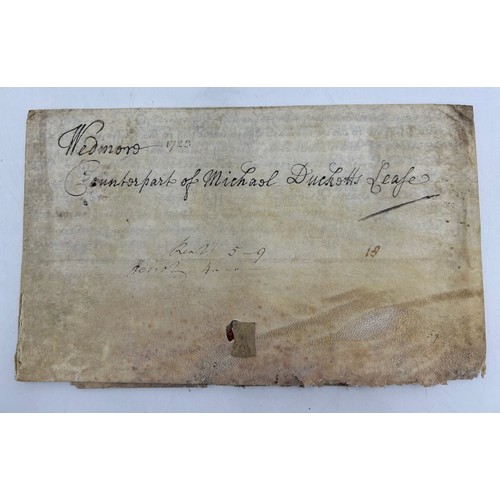 Wedmore 1723
Counterpart of Michael Ducketts Lease
Rent 5 - 9 18
Heriot 4 - -